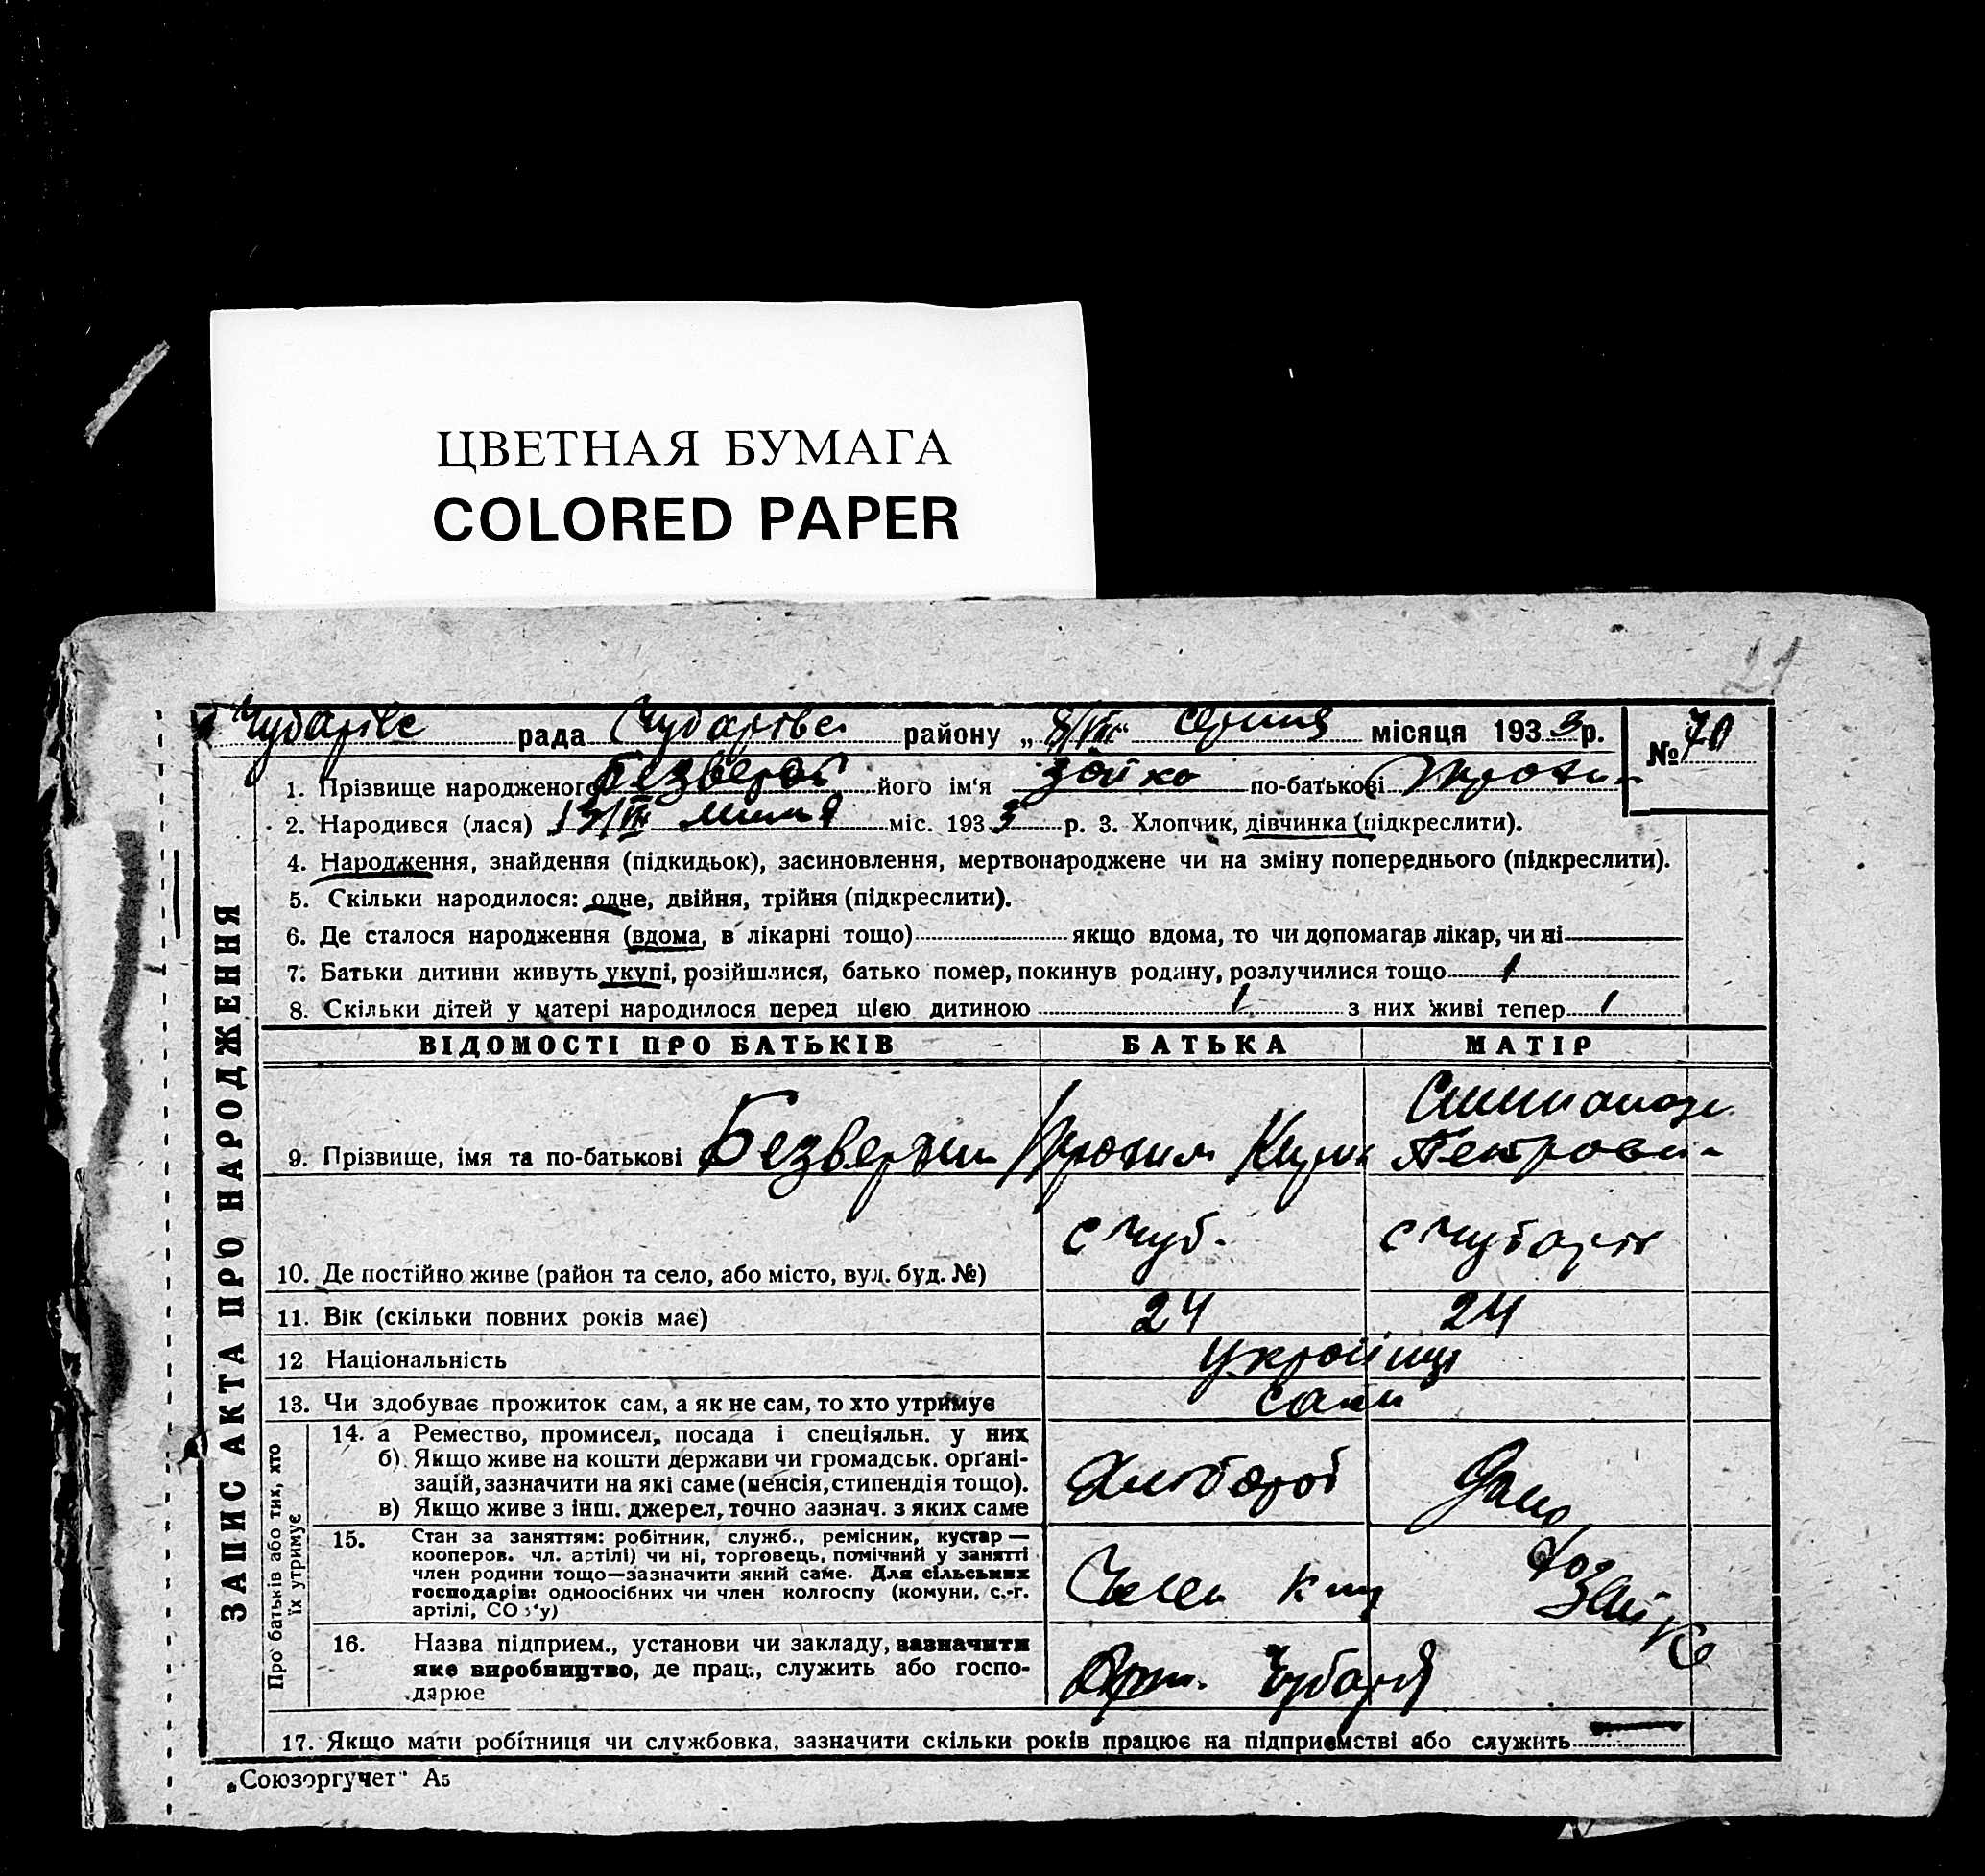 ЦВЕТНАЯ БУМАГА
COLORED PAPER
21
рада району „ серпня місяця 1933 р.
№ 70
1. Прізвище народженого його ім‘я Зойка по-батькові
2. Народився (лася) міс. 1933 р. 3. Хлопчик, дівчинка (підкреслити).
4. Народження, знайдення (підкидьок), засиновлення, мертвонароджене чи на зміну попереднього (підкреслити).
5. Скільки народилося: одне, двійня, трійня (підкреслити).
6. Де сталося народження (вдома, в лікарні тощо) якщо вдома, то чи допомагав лікар, чи ні
7. Батьки дитини живуть укупі, розійшлися, батько помер, покинув родину, розлучилися тощо
8. Скільки дітей у матері народилося перед цією дитиною 1 з них живі тепер 1
ЗАПИС АКТА ПРО НАРОДЖЕННЯ
ВІДОМОСТІ ПРО БАТЬКІВ БАТЬКА МАТІР
9. Прізвище, імя та по-батькові
10. Де постійно живе (район та село, або місто, вул. буд. №) с Чуб.
11. Вік (скільки повних років має) 24 24
12 Національність
13. Чи здобуває прожиток сам, а як не сам, то хто утримує сами
Про батьків або тих, хто їх утримує
14. а Ремество, промисел, посада і спеціяльн. у них
б) Якщо живе на кошти держави чи громадськ. орґані-
зацій, зазначити на які саме (пенсія, стипендія тощо).
в) Якщо живе з інш. джерел, точно зазнач. з яких саме
Хлібороб
15. Стан за заняттям: робітник, служб., ремісник, кустар —
кооперов. чл. артілі) чи ні, торговець, помічний у занятті
член родини тощо—зазначити який саме. Для сільських
господарів: одноосібних чи член колгоспу (комуни, с.-г.
артілі, СОЗ‘у)
16. Назва підприєм., установи чи закладу, зазначити
яке виробництво, де прац., служить або госпо-
дарює
17. Якщо мати робітниця чи службовка, зазначити скільки років працює на підприємстві або служить
„Союзоргучет" А5